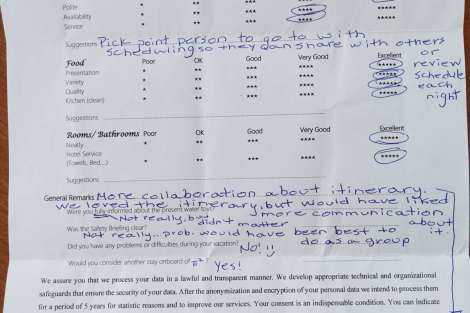 Polite * ** *** **** *****
Availability * ** *** **** *****
Service * ** *** **** *****
Suggestions Pick point person to go to with
scheduling so they can share with others
or
review
schedule
each
night
Food Poor OK Good Very Good Excellent
Presentation * ** *** **** *****
Variety * ** *** **** *****
Quality * ** *** **** *****
Kitchen (clean) * ** *** **** *****
Suggestions
Rooms/ Bathrooms Poor OK Good Very Good Excellent
Neatly * ** *** **** *****
Hotel Service * ** *** **** *****
(Towels, Bed...)
Suggestions
General Remarks More collaboration about itinerary.
We loved the itinerary, but would have liked
more communication
about
it
Were you fully informed about the present water toys?
Not really, but didn't matter
Was the Safety Briefing clear?
Not really... prob. would have been best to
do as a group
Did you have any problems or difficulties during your vacation? No!!
Would you consider another stay onboard of Yes!
We assure you that we process your data in a lawful and transparent manner. We develop appropriate technical and organizational
safeguards that ensure the security of your data. After the anonymization and encryption of your personal data we intend to process them
for a period of 5 years for statistic reasons and to improve our services. Your consent is an indispensable condition. You can indicate